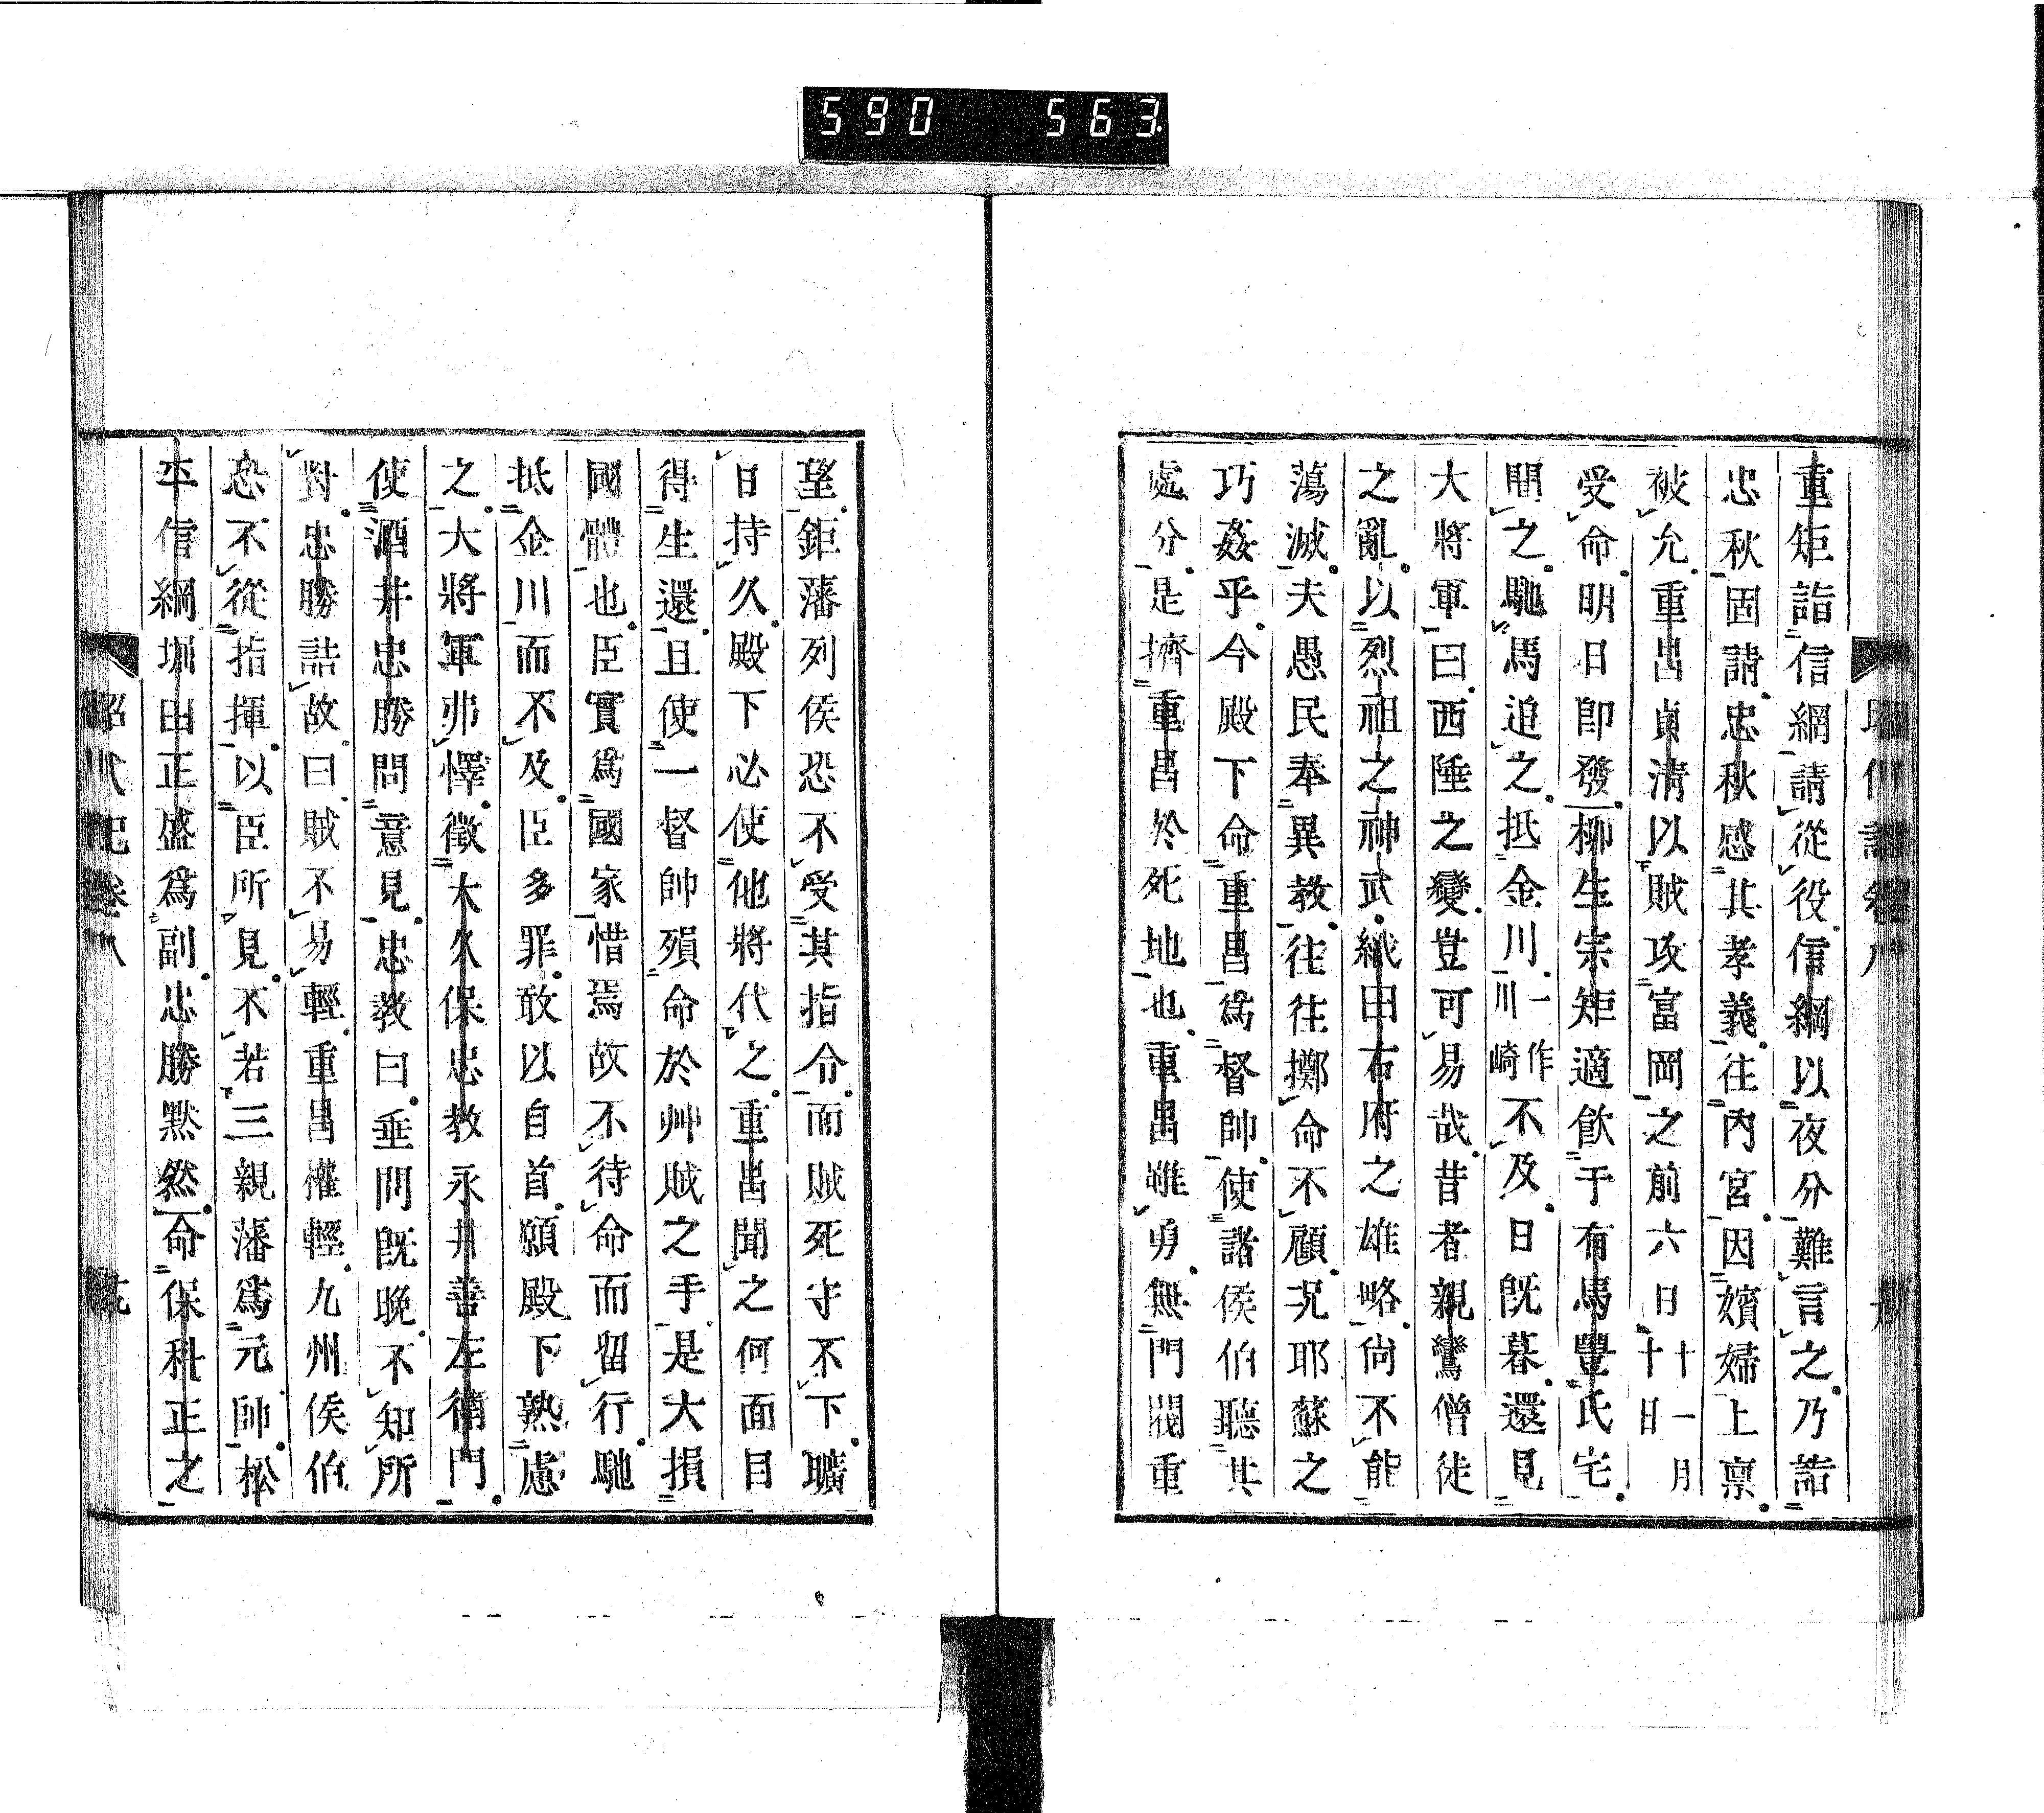 590 563
重矩詣信綱請從役信綱以夜分難言之乃詣
忠秋固請忠秋感其孝義往內宮因嬪婦上稟
被允重昌貞淸以賊攻富岡之前六日十一月十日
受命明日卽發柳生宗矩適飮于有馬豐氏宅
聞之馳馬追之抵金川一作川崎不及日旣暮還見
大將軍曰西陲之變豈可易哉昔者親鸞僧徒
之亂以烈祖之神武織田右府之雄略尙不能
蕩滅夫愚民奉異教往往擲命不顧況耶蘇之
巧姦乎今殿下命重昌爲督帥使諸侯伯聽其
處分是擠重昌於死地也重昌雖勇無門閥重
望鉅藩列侯恐不受其指令而賊死守不下曠
日持久殿下必使他將代之重昌聞之何面目
得生還且使一督帥殞命於艸賊之手是大損
國體也臣實爲國家惜焉故不待命而留行馳
抵金川而不及臣多罪敢以自首願殿下熟慮
之大將軍弗懌徵大久保忠教永井善左衞門
使酒井忠勝問意見忠教曰垂問旣晚不知所
對忠勝詰故曰賊不易輕重昌權輕九州侯伯
恐不從指揮以臣所見不若三親藩爲元帥松
平信綱堀田正盛爲副忠勝默然命保科正之
昭代記卷八